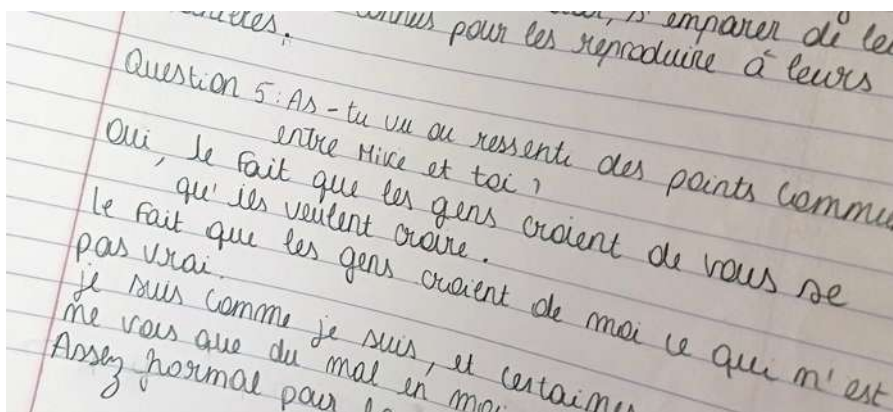 pour les reproduire à leurs
s'emparer de
Question 5: As-tu vu ou ressenti des points
entre Mike et toi ?
Oui, le fait que les gens croient de vous se
qu'ils veulent croire.
le fait que les gens croient de moi ce qui n'est
pas vrai.
je suis comme je suis, et
me vois que du mal en
Assez normal pour